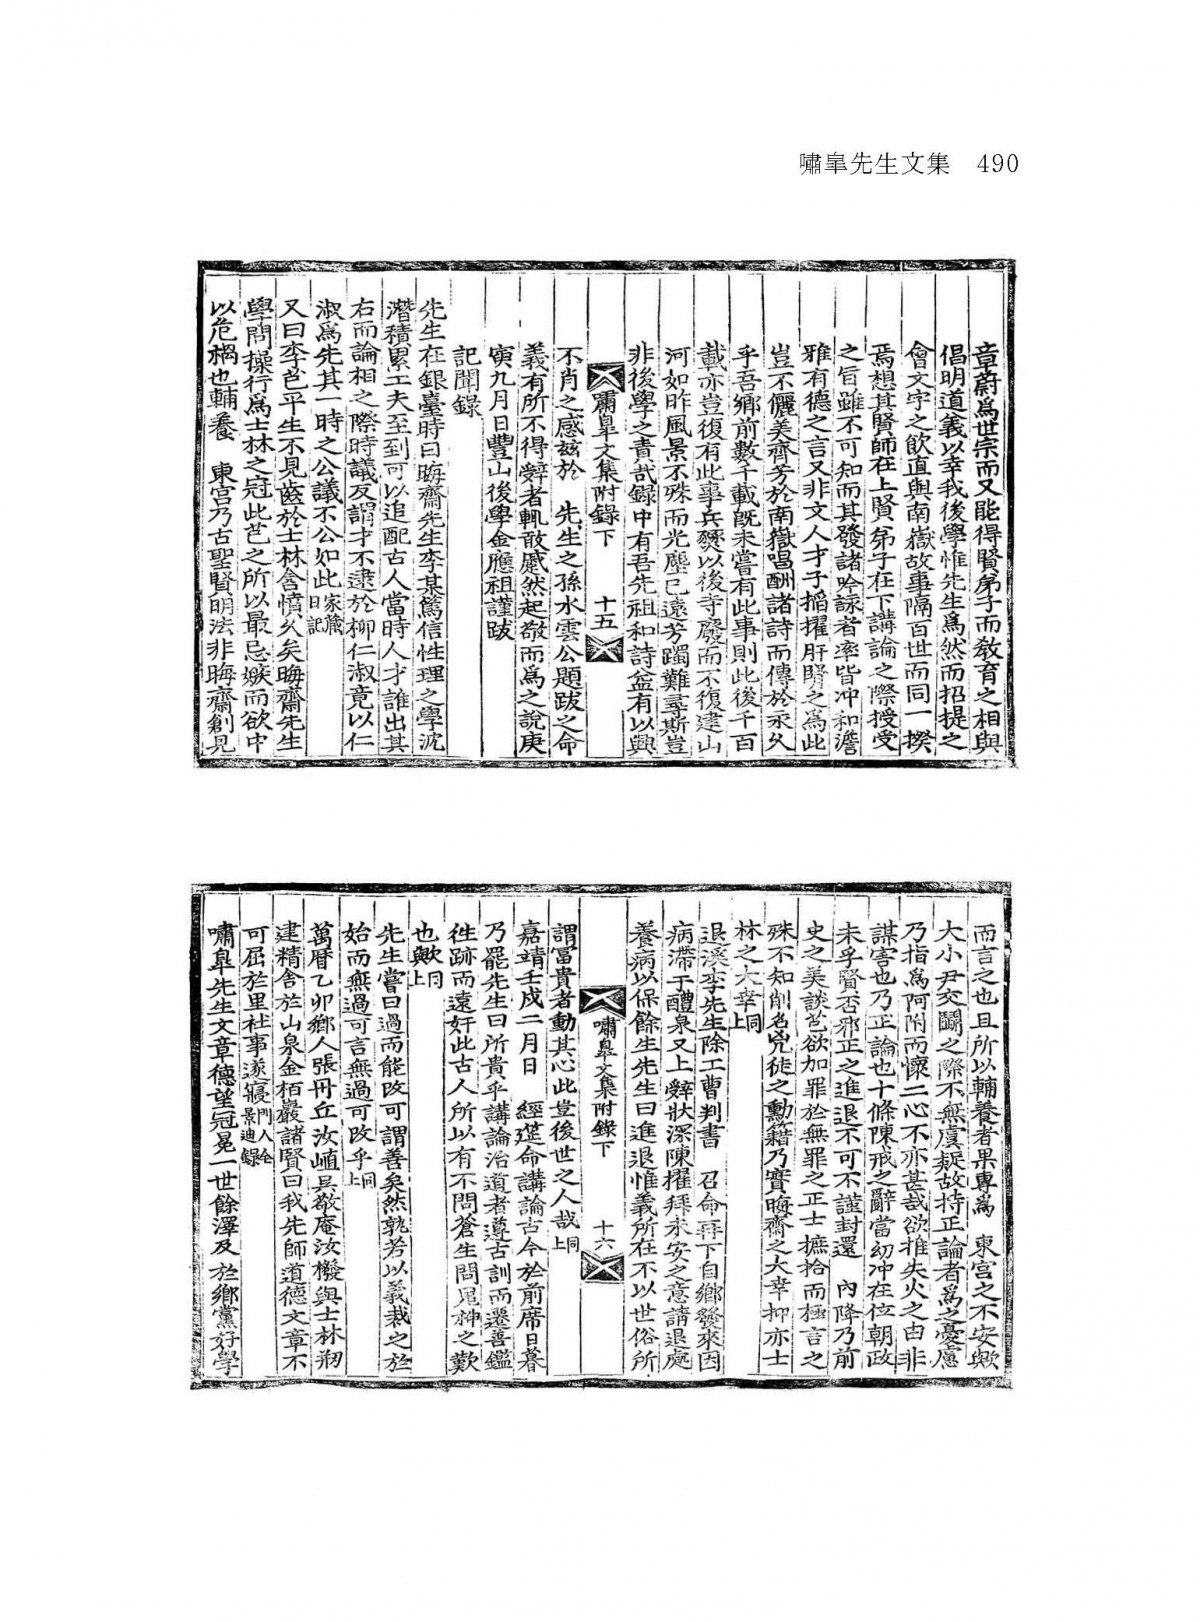 嘯皐先生文集 490
章蔚爲世宗而又能得賢弟子而敎育之相與
倡明道義以幸我後學惟先生爲然而招提之
會文字之飮直與南嶽故事隔百世而同一揆
焉想其賢師在上賢弟子在下講論之際授受
之旨雖不可知而其發諸吟詠者率皆冲和澹
雅有德之言又非文人才子搯擢肝腎之爲此
豈不儷美齊芳於南嶽唱酬諸詩而傳於永久
乎吾鄕前數千載旣未嘗有此事則此後千百
載亦豈復有此事兵燹以後寺廢而不復建山
河如昨風景不殊而光塵已遠芳躅難尋斯豈
非後學之責哉錄中有吾先祖和詩益有以興
嘯皐文集附錄下 十五
不肖之感玆於 先生之孫水雲公題跋之命
義有所不得辭者輒敢蹙然起敬而爲之說庚
寅九月日豐山後學金應祖謹跋
記聞錄
先生在銀臺時曰晦齋先生李某篤信性理之學沈
潛積累工夫至到可以追配古人當時人才誰出其
右而論相之際時議反謂才不逮於柳仁淑竟以仁
淑爲先其一時之公議不公如此家藏日記
又曰李芑平生不見齒於士林含憤久矣晦齋先生
學問操行爲士林之冠此芑之所以最忌嫉而欲中
以危禍也輔養 東宮乃古聖賢明法非晦齋創見
而言之也且所以輔養者果專爲 東宮之不安歟
大小尹交鬪之際不無虞疑故持正論者爲之憂慮
乃指爲阿附而懷二心不亦甚哉欲推失火之由非
謀害也乃正論也十條陳戒之辭當幼冲在位朝政
未孚賢否邪正之進退不可不謹封還 內降乃前
史之美談芑欲加罪於無罪之正士摭拾而極言之
殊不知削名兇徒之勳籍乃實晦齋之大幸抑亦士
林之大幸同上
退溪李先生除工曹判書 召命再下自鄕發來因
病滯于醴泉又上辭狀深陳擢拜未安之意請退處
養病以保餘生先生曰進退惟義所在不以世俗所
嘯皐文集附錄下 十六
謂富貴者動其心此豈後世之人哉同上
嘉靖壬戌二月日 經筵命講論古今於前席日暮
乃罷先生曰所貴乎講論治道者遵古訓而遷善鑑
徃跡而遠奸此古人所以有不問蒼生問鬼神之歎
也歟同上
先生嘗曰過而能改可謂善矣然孰若以義裁之於
始而無過可言無過可改乎同上
萬曆乙卯鄕人張丹丘汝㮨具敬庵汝橃與士林刱
建精舍於山泉金栢巖諸賢曰我先師道德文章不
可屈於里社事遂寢門人全景迪錄
嘯皐先生文章德望冠冕一世餘澤及於鄕黨好學